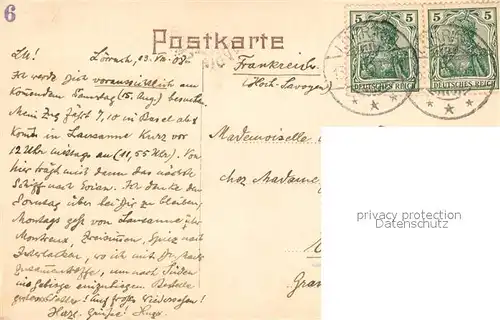 6
Postkarte
5 5
DEUTSCHES REICH DEUTSCHES REICH
L.M.! Lörrach, 13. VIII. 08.
Ich werde Dich voraussichtlich am
kommenden Samstag (15. Aug) besuchen.
Mein Zug fährt 7,10 in Basel ab
komme in Lausanne kurz vor
12 Uhr mittags an (11,55 Uhr). Von
hier trägt mich dann das nächste
Schiff nach Evian. Ich denke den
Sonntag über bei Dir zu bleiben,
Montags geht's von Lausanne über
Montreux, Zweisimmen, Spiez nach
Interlaken, wo ich mit
zusammentreffe, um nach Süden
ins Gebirge einzubiegen. Bestelle
gutes Wetter! Auf frohes Wiedersehen!
Herzl. Grüße! Hugo.
Frankreich.
(Hoch-Savoyen)
Mademoiselle
chez Madame
Gran
privacy protection
DATENSCHUTZ